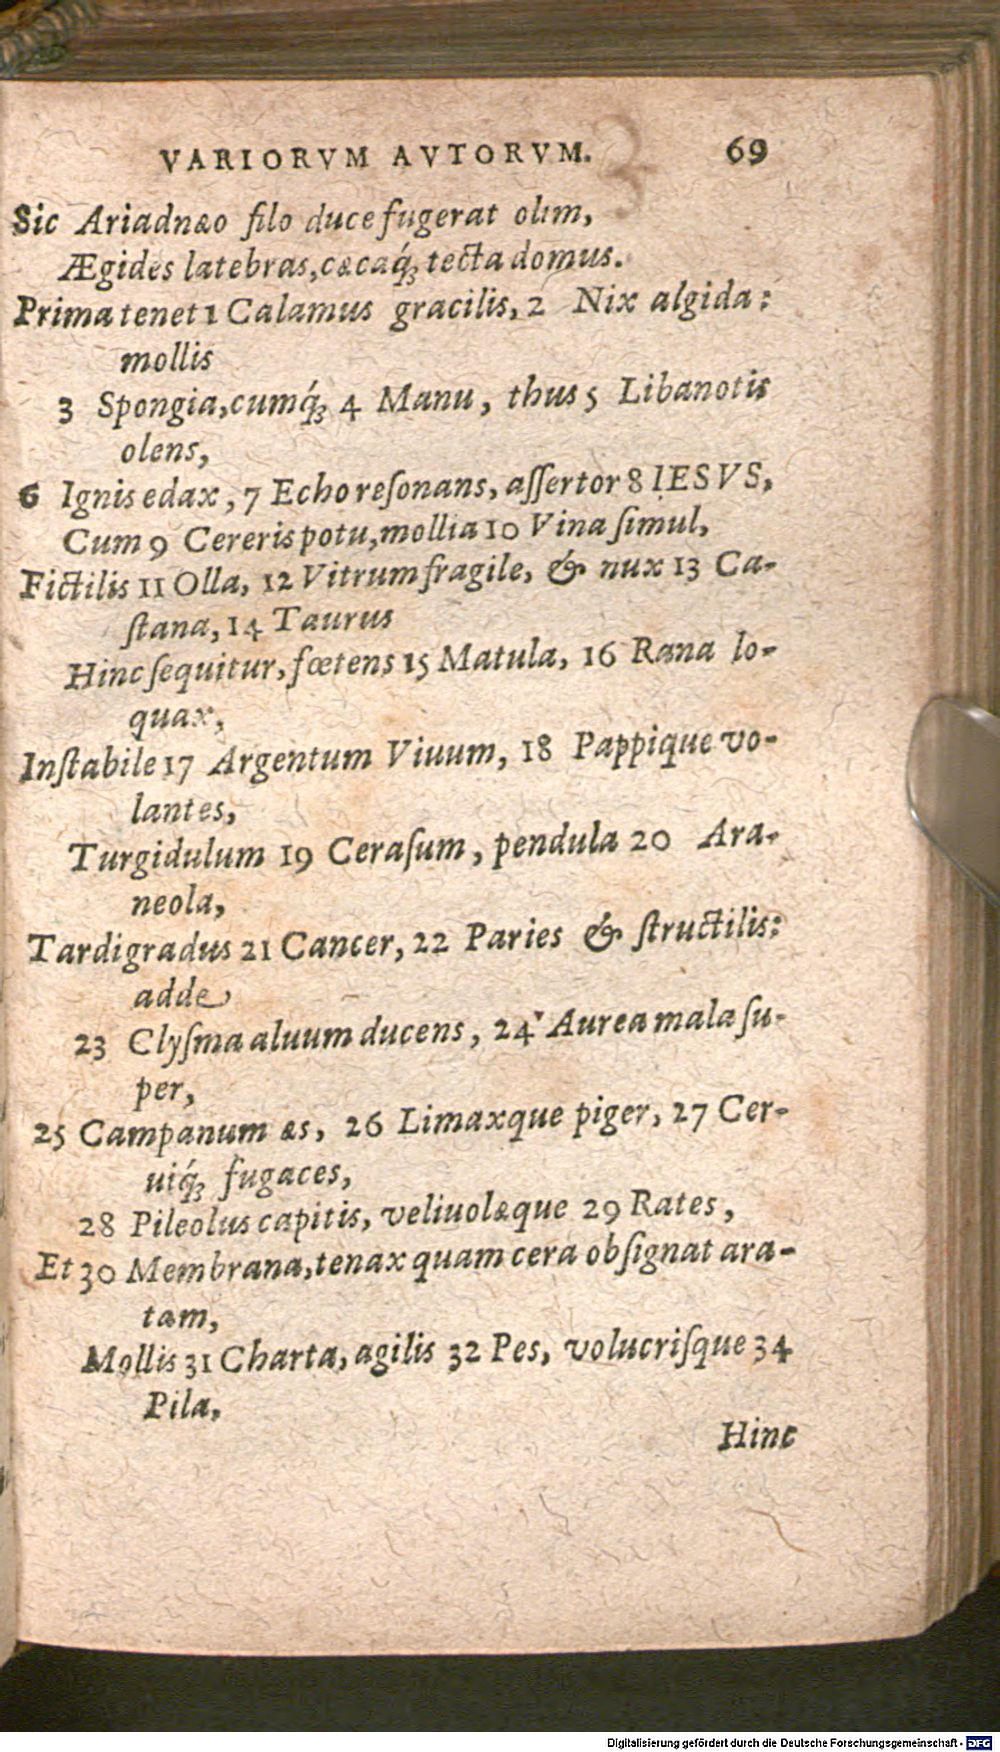 VARIORVM AVTORVM. 69
Sic Ariadnæo filo duce fugerat olim,
Ægides latebras, cæcaq́ꝫ tecta domus.
Prima tenet 1 Calamus gracilis, 2 Nix algida:
mollis
3 Spongia, cumq́ꝫ 4 Manu, thus 5 Libanotis
olens,
6 Ignis edax, 7 Echo reſonans, aſſertor 8 IESVS,
Cum 9 Cereris potu, mollia 10 Vina ſimul,
Fictilis 11 Olla, 12 Vitrum fragile, & nux 13 Ca-
ſtana, 14 Taurus
Hinc ſequitur, fœtens 15 Matula, 16 Rana lo-
quax,
Inſtabile 17 Argentum Viuum, 18 Pappique vo-
lantes,
Turgidulum 19 Ceraſum, pendula 20 Ara-
neola,
Tardigradus 21 Cancer, 22 Paries & ſtructilis:
adde
23 Clyſma aluum ducens, 24 Aurea mala ſu-
per,
25 Campanum æs, 26 Limaxque piger, 27 Cer-
uiq́ꝫ fugaces,
28 Pileolus capitis, veliuolæque 29 Rates,
Et 30 Membrana, tenax quam cera obſignat ara-
tam,
Mollis 31 Charta, agilis 32 Pes, volucriſque 34
Pila,
Hinc
Digitalisierung gefördert durch die Deutsche Forschungsgemeinschaft - DFG